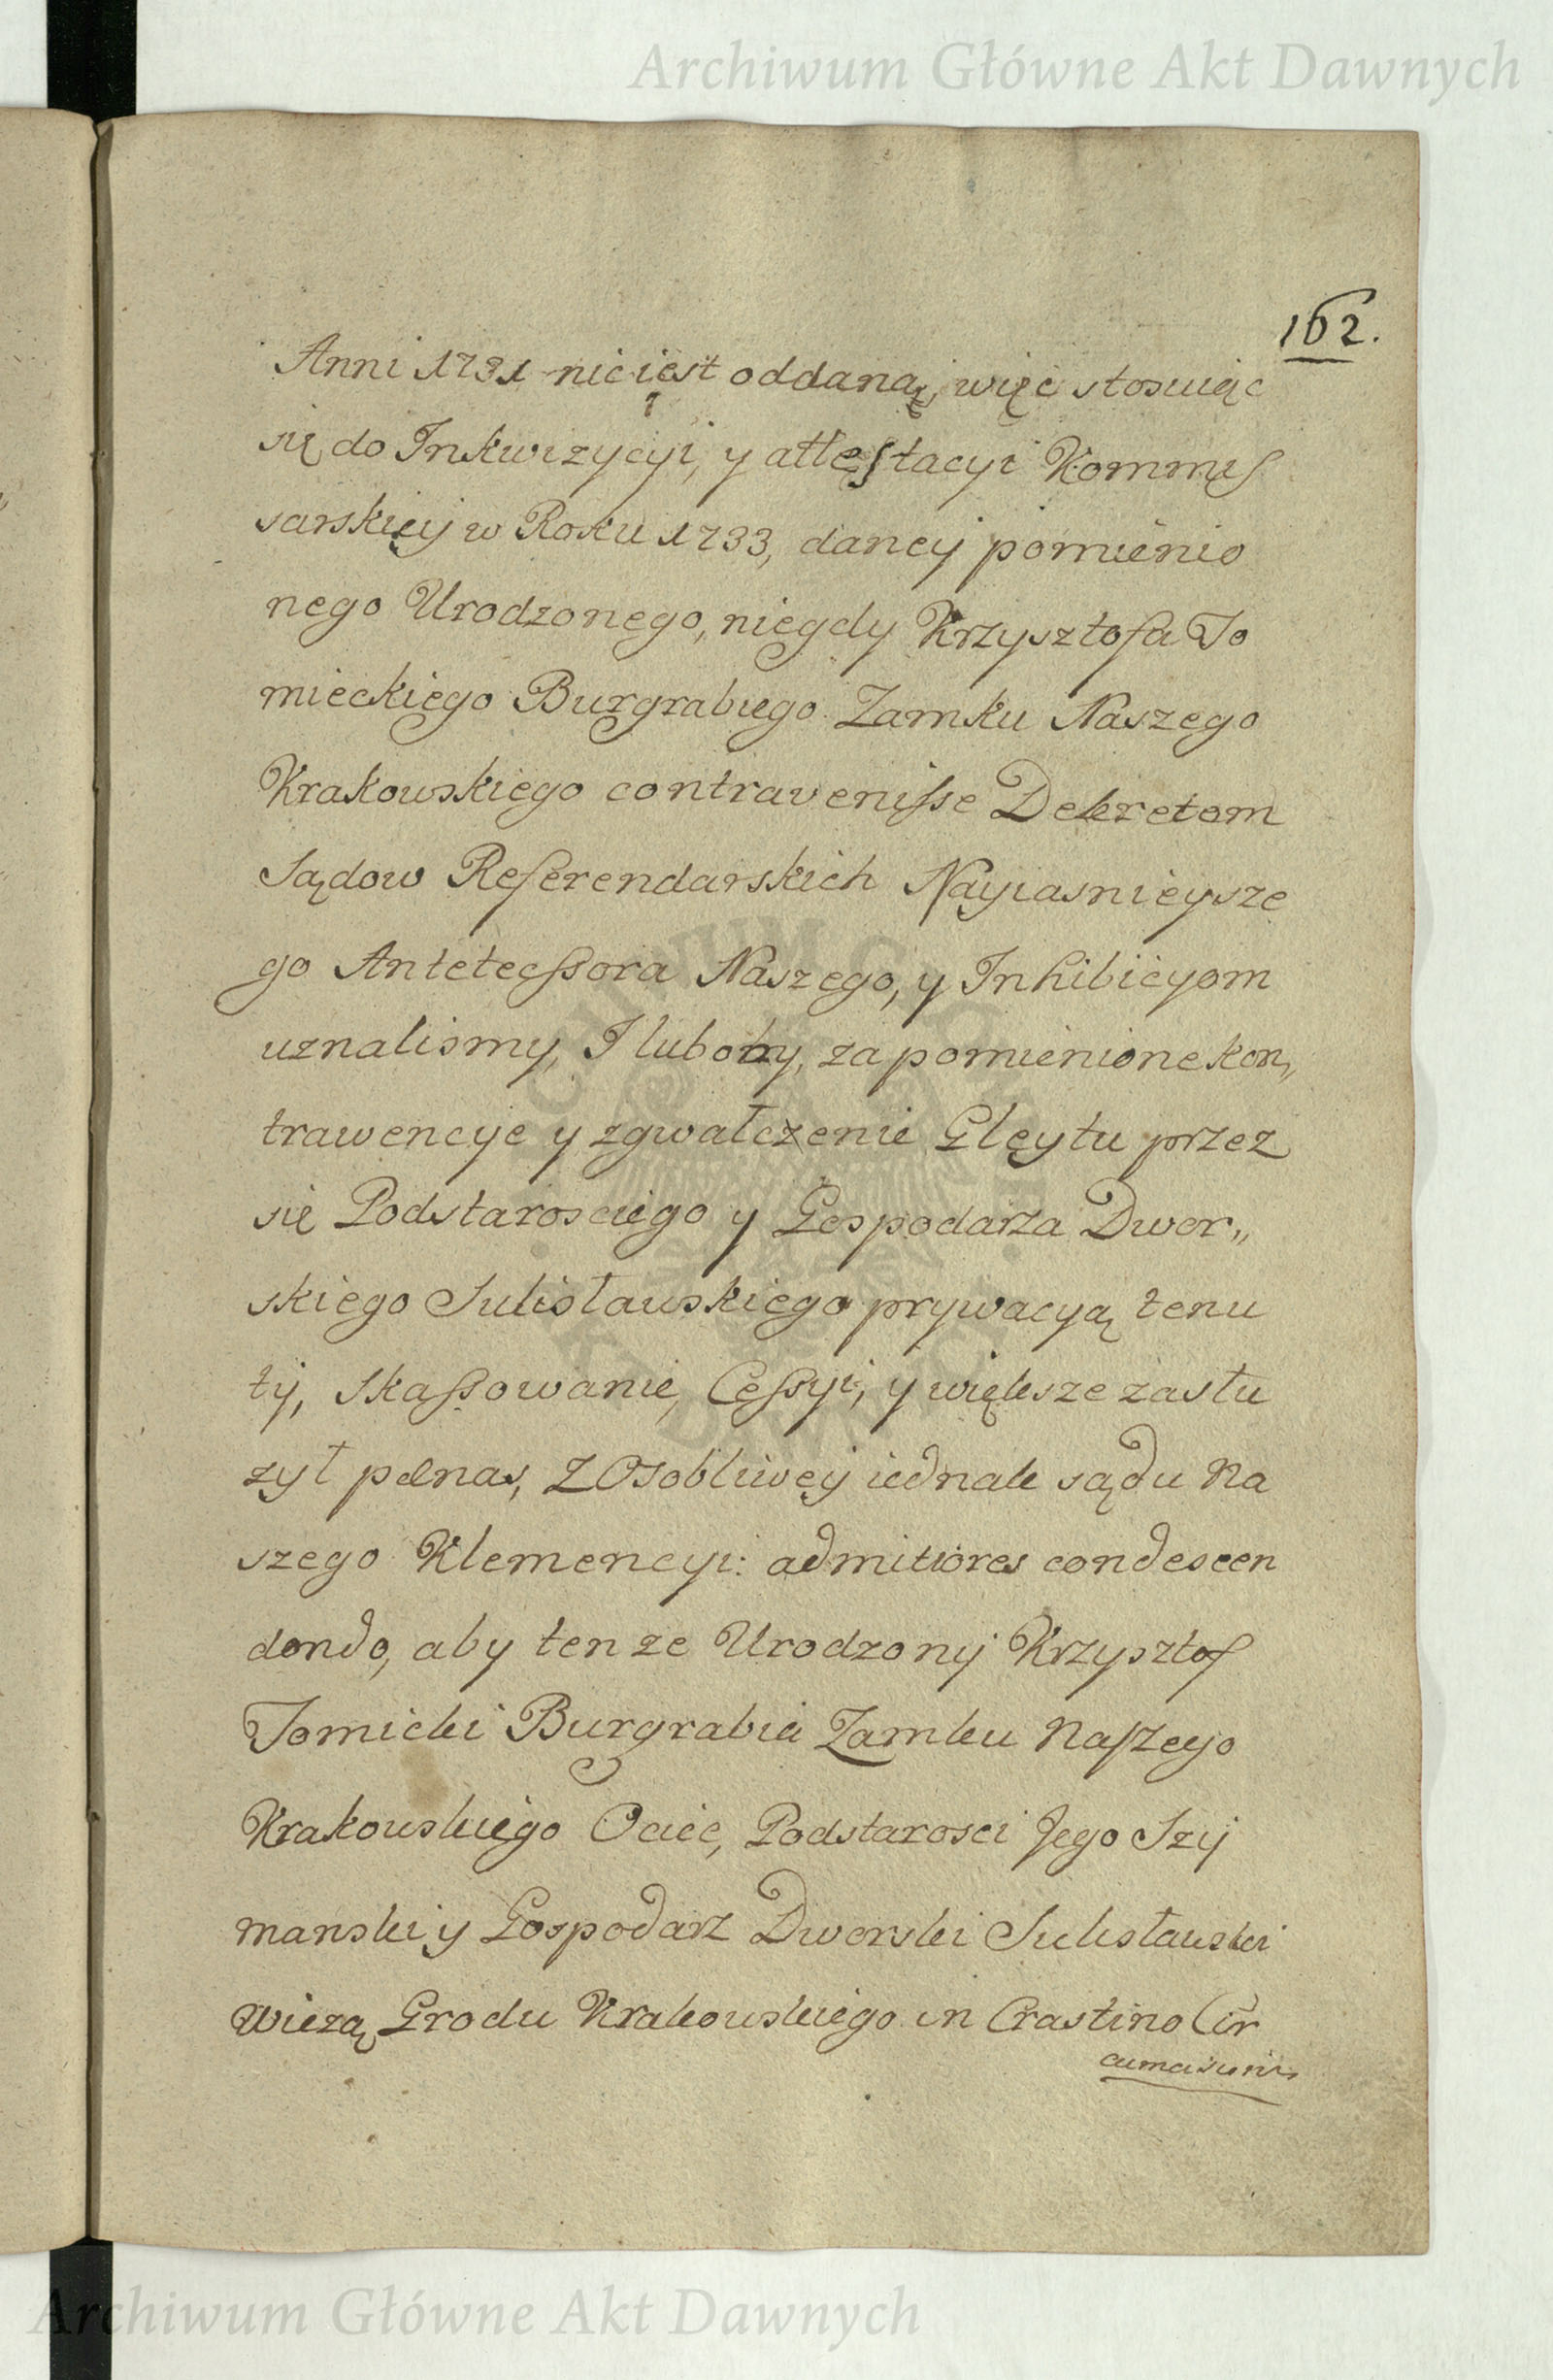 Archiwum Główne Akt Dawnych
162.
Anni 1731 nie iest oddaną, więc stosuiąc
się do Inkwizycyi, y attestacyi Kommis
sarskiey w Roku 1733, daney pomienio
nego Urodzonego, niegdy Krzysztofa To
mieckiego Burgrabiego Zamku Naszego
Krakowskiego contravenisse Dekretom
Sądow Referendarskich Nayiasnieysze
go Antetecssora Naszego, y Inhibicyom
uznalismy, I luboby, za pomienione kon,,
trawencye y zgwałczenie Gleytu przez
się Podstarosciego y Gospodarza Dwor,,
skiego Sulisławskiego prywacyą tenu
ty, skassowanie, Cessyi, y większe zasłu
zył pœnas, z Osobliwey iednak sądu Na
szego Klemencyi: ad mitiores condescen
dendo, aby tenze Urodzony Krzysztof
Tomicki Burgrabia Zamku Naszego
Krakowskiego Ociec, Podstarosci Jego Szy
manski y Gospodarz Dworski Sulisławski
Wiezą Grodu Krakowskiego in Crastino Cir
cumcisionis
Archiwum Główne Akt Dawnych